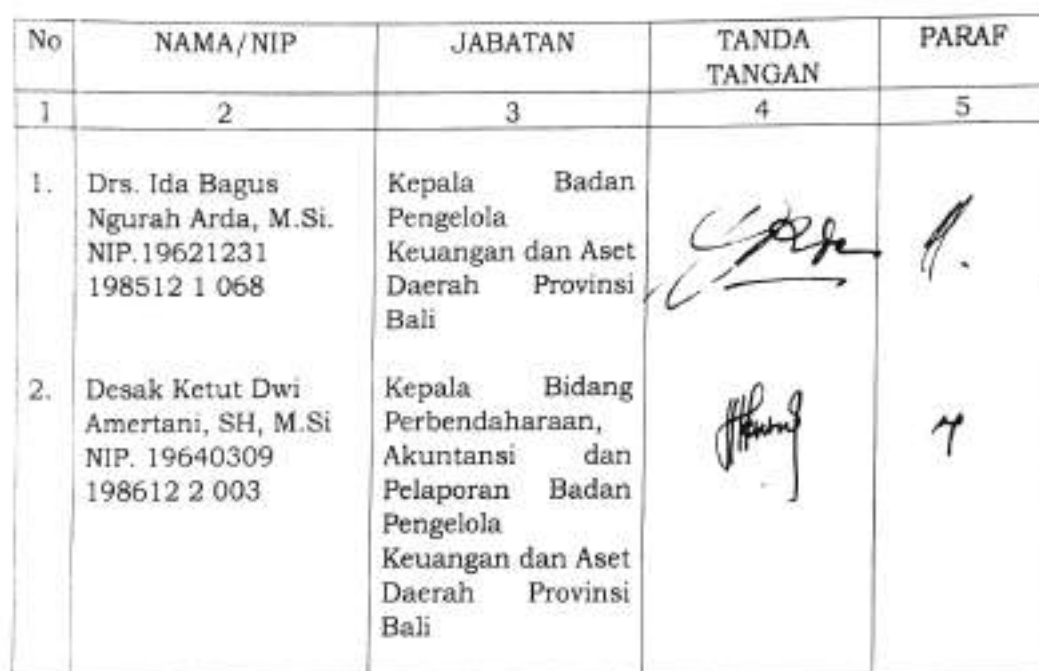 No NAMA/NIP JABATAN TANDA TANGAN PARAF
1 2 3 4 5
1. Drs. Ida Bagus
Ngurah Arda, M.Si.
NIP.19621231
198512 1 068
Kepala Badan
Pengelola
Keuangan dan Aset
Daerah Provinsi
Bali
2. Desak Ketut Dwi
Amertani, SH, M.Si
NIP. 19640309
198612 2 003
Kepala Bidang
Perbendaharaan,
Akuntansi dan
Pelaporan Badan
Pengelola
Keuangan dan Aset
Daerah Provinsi
Bali